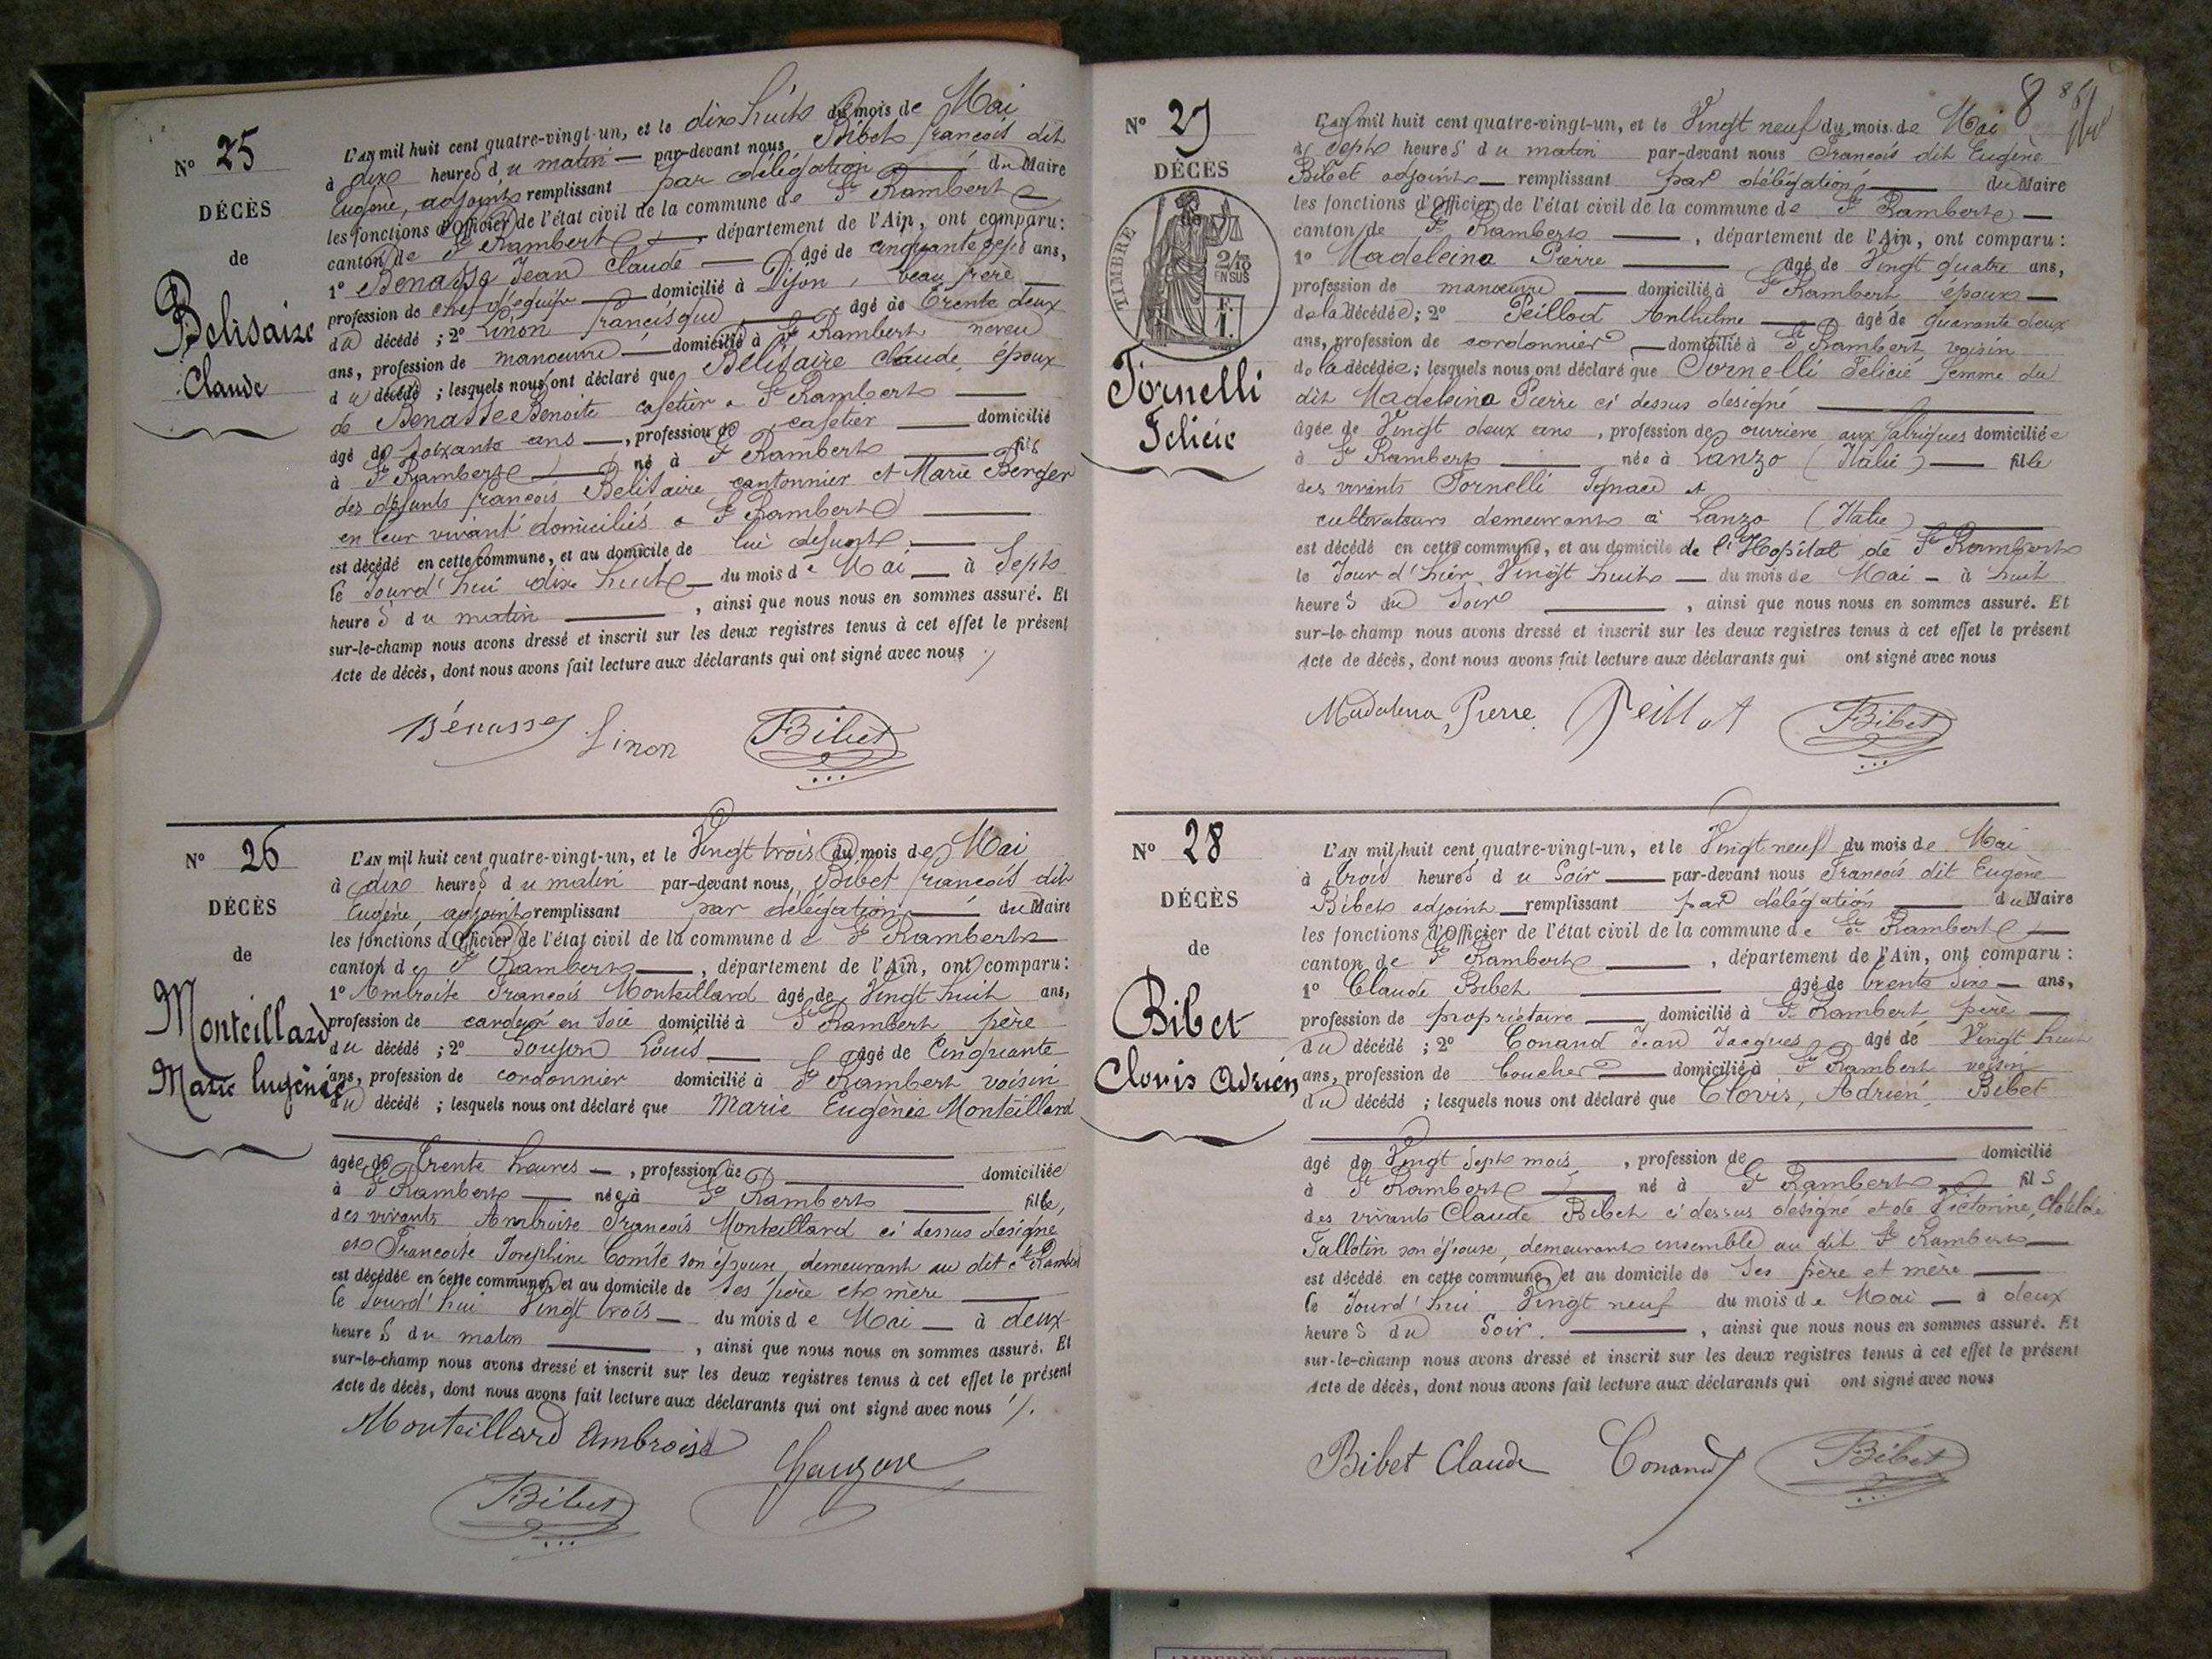 N° 25
DÉCÈS
de
Belisaire
Claude
L'AN mil huit cent quatre-vingt-un, et le dix huit du mois de Mai
à dix heures du matin par-devant nous Bibet françois dit
Eugène, adjoint remplissant par délégation du Maire
les fonctions d'Officier de l'état civil de la commune de St Rambert
canton de St Rambert, département de l'Ain, ont comparu:
1° Benasse Jean Claude âgé de cinquante sept ans,
profession de chef d'equipe domicilié à Dijon, beau frère
du décédé ; 2° Linon francisque âgé de trente deux
ans, profession de manœuvre domicilié à St Rambert neveu
du décédé ; lesquels nous ont déclaré que Belisaire claude, époux
de Benasse Benoite cafetier a St Rambert
âgé de soixante ans, profession de cafetier domicilié
à St Rambert né à St Rambert fils
des défunts françois Belisaire cantonnier et Marie Berger
en leur vivant domiciliés a St Rambert
est décédé en cette commune, et au domicile de lui defunt
le Jourd'hui dix huit du mois de Mai à Sept
heures du matin, ainsi que nous nous en sommes assuré. Et
sur-le-champ nous avons dressé et inscrit sur les deux registres tenus à cet effet le présent
Acte de décès, dont nous avons fait lecture aux déclarants qui ont signé avec nous
Bénasse Linon Bibet
N° 26
DÉCÈS
de
Monteillard
Marie Eugénie
L'AN mil huit cent quatre-vingt-un, et le Vingt trois du mois de Mai
à dix heures du matin par-devant nous, Bibet françois dit
Eugène, adjoint remplissant par délégation du Maire
les fonctions d'Officier de l'état civil de la commune de St Rambert
canton de St Rambert, département de l'Ain, ont comparu:
1° Ambroise François Monteillard âgé de Vingt huit ans,
profession de cardeur en Soie domicilié à St Rambert père
du décédé ; 2° Louis âgé de Cinquante
ans, profession de cordonnier domicilié à St Rambert voisin
du décédé ; lesquels nous ont déclaré que Marie Eugènie Monteillard
âgée de trente heures, profession de domiciliée
à St Rambert née à St Rambert fille,
des vivants Ambroise François Monteillard ci dessus designé
et Françoise Josephine Comte son épouse, demeurant au dit St Rambert
est décédée en cette commune, et au domicile de Ses père et mère
le Jourd'hui Vingt trois du mois de Mai à deux
heures du matin, ainsi que nous nous en sommes assuré. Et
sur-le-champ nous avons dressé et inscrit sur les deux registres tenus à cet effet le présent
Acte de décès, dont nous avons fait lecture aux déclarants qui ont signé avec nous
Monteillard Ambroise
Bibet
8
N° 27
DÉCÈS
TIMBRE
2/10
EN SUS
Tornelli
Felicie
L'AN mil huit cent quatre-vingt-un, et le Vingt neuf du mois de Mai
à Sept heures du matin par-devant nous François dit Eugène
Bibet adjoint remplissant par délégation du Maire
les fonctions d'Officier de l'état civil de la commune de St Rambert
canton de St Rambert, département de l'Ain, ont comparu:
1° Madeleina Pierre âgé de Vingt quatre ans,
profession de manœuvre domicilié à St Rambert époux
de la décédée ; 2° Peillod Anthelme âgé de quarante deux
ans, profession de cordonnier domicilié à St Rambert voisin
de la décédée ; lesquels nous ont déclaré que Tornelli Felicie femme du
dit Madeleina Pierre ci dessus designé
âgée de Vingt deux ans, profession de ouvriere aux fabriques domiciliée
à St Rambert née à Lanzo (Italie) fille
des vivants Tornelli Ignace et
cultivateurs demeurant à Lanzo (Italie)
est décédé en cette commune, et au domicile de l'Hopital de St Rambert
le Jour d'hier Vingt huit du mois de Mai à huit
heures du Soir, ainsi que nous nous en sommes assuré. Et
sur-le-champ nous avons dressé et inscrit sur les deux registres tenus à cet effet le présent
Acte de décès, dont nous avons fait lecture aux déclarants qui ont signé avec nous
Madalena Pierre Peillot Bibet
N° 28
DÉCÈS
de
Bibet
Clovis Adrien
L'AN mil huit cent quatre-vingt-un, et le Vingt neuf du mois de Mai
à trois heures du Soir par-devant nous François dit Eugène
Bibet adjoint remplissant par délégation du Maire
les fonctions d'Officier de l'état civil de la commune de St Rambert
canton de St Rambert, département de l'Ain, ont comparu :
1° Claude Bibet âgé de trente Six ans,
profession de propriétaire domicilié à St Rambert père
du décédé ; 2° Conand Jean Jacques âgé de Vingt huit
ans, profession de boucher domicilié à St Rambert voisin
du décédé ; lesquels nous ont déclaré que Clovis, Adrien, Bibet
âgé de Vingt Sept mois, profession de domicilié
à St Rambert né à St Rambert fils
des vivants Claude Bibet ci dessus désigné et de Victorine, Clotilde
Tallotin son épouse, demeurant ensemble au dit St Rambert
est décédé en cette commune, et au domicile de Ses père et mère
le Jourd'hui Vingt neuf du mois de Mai à deux
heures du Soir, ainsi que nous nous en sommes assuré. Et
sur-le-champ nous avons dressé et inscrit sur les deux registres tenus à cet effet le présent
Acte de décès, dont nous avons fait lecture aux déclarants qui ont signé avec nous
Bibet Claude Conand Bibet